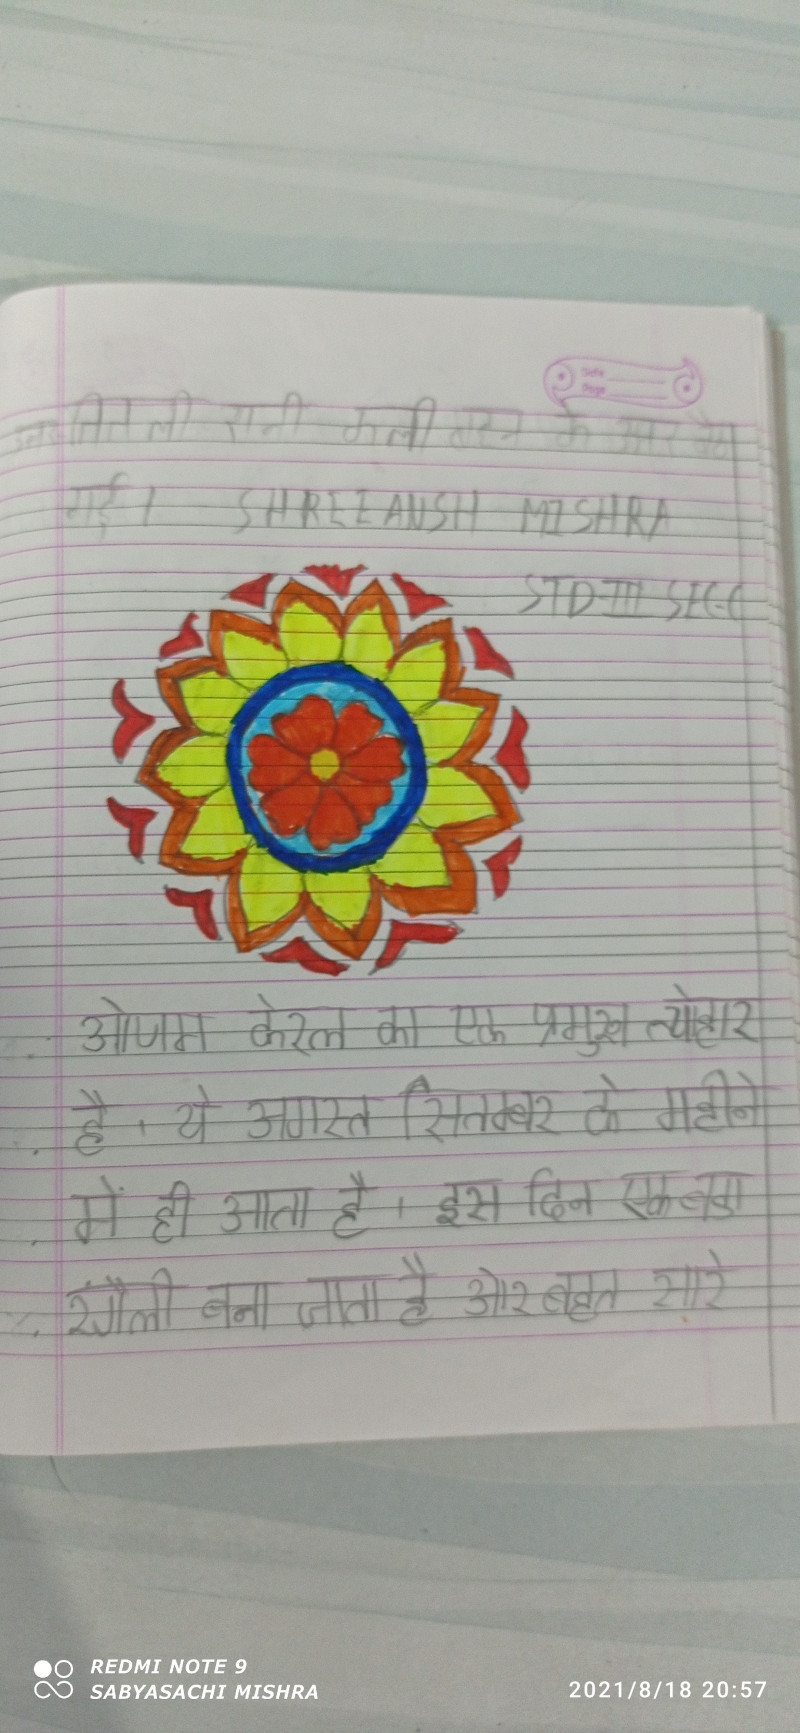 तितली रानी कली के
गई। SHREEANSH MISHRA
STD-III SEC-C
ओणम केरल का एक प्रमुख त्योहार
है। ये अगस्त सितम्बर के महीने
में ही आता है। इस दिन एक बडा
रंगौली बना जाता है ओर बहुत सारे
REDMI NOTE 9
SABYASACHI MISHRA
2021/8/18 20:57